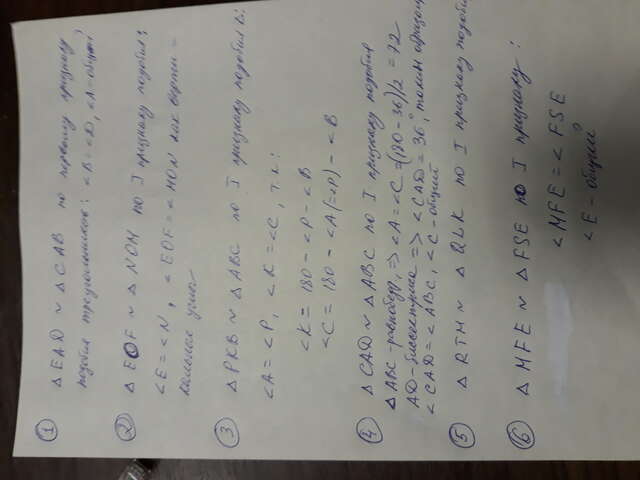 ① △EAD ~ △CAB по первому признаку
подобия треугольников: ∠B = ∠D, ∠A = общий
② △EOF ~ △NOM по I признаку подобия:
∠E = ∠N, ∠EOF = ∠MON как верти-
кальные углы
③ △PKB ~ △ABC по I признаку подобия
∠A = ∠P, ∠K = ∠C, т.к:
∠K = 180 - ∠P - ∠B
∠C = 180 - ∠A(=∠P) - ∠B
④ △CAD ~ △ABC по I признаку подобия
△ABC - равнобедр, => ∠A = ∠C = (180 - 36)/2 = 72
AD - биссектриса => ∠CAD = 36°, таким образом
∠CAD = ∠ABC, ∠C - общий
⑤ △RTM ~ △QLK по I признаку подоби
⑥ △MFE ~ △FSE по I признаку:
∠MFE = ∠FSE
∠E - общий